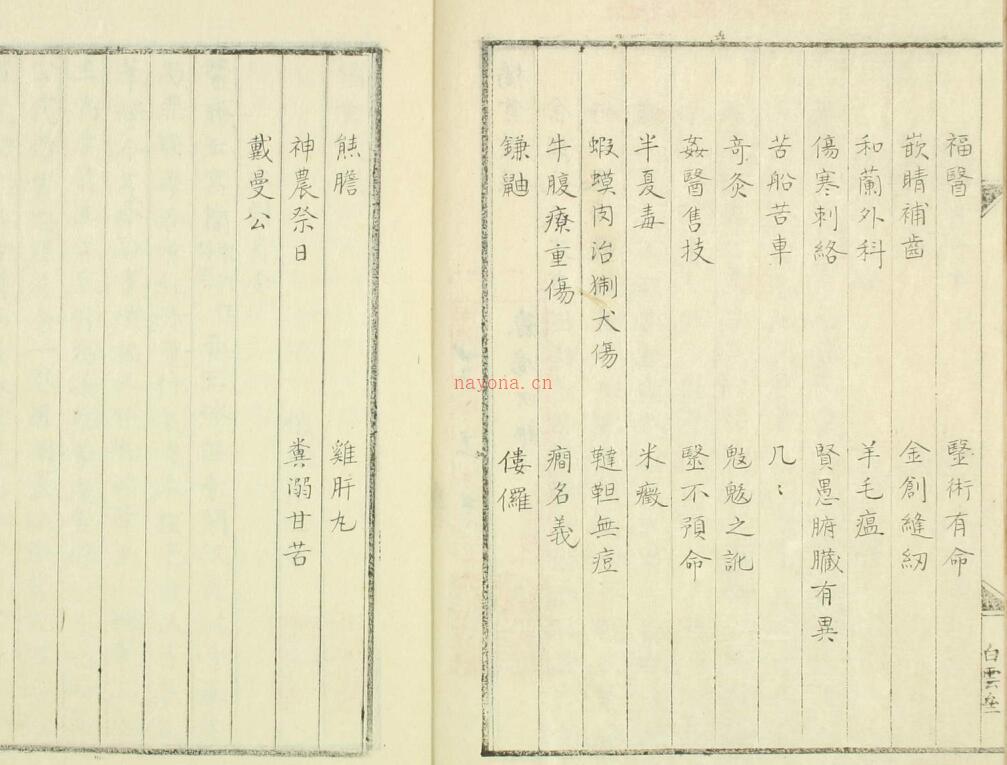 福醫 醫術有命
嵌睛補齒 金創縫紉
和蘭外科 羊毛瘟
傷寒刺絡 賢愚腑臟有異
苦船苦車 几〻
奇灸 之訛
姦醫售技 毉不預命
半夏毒 米癥
蝦蟆肉治猘犬傷 韃靼無痘
牛腹療重傷 癇名義
鎌鼬 僂儸
白雲
熊膽 雞肝丸
神農祭日 糞溺甘苦
戴曼公
nayona.cn